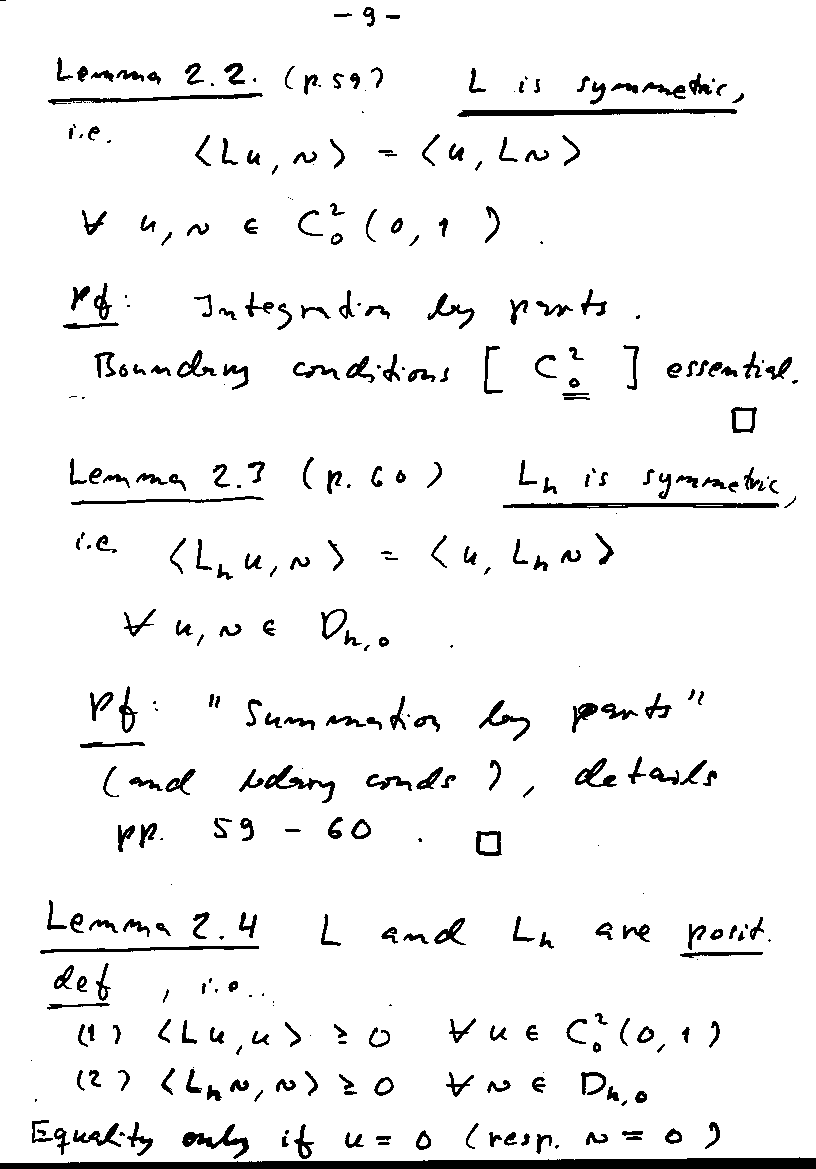 - 9 -
Lemma 2.2. (p. 59) L is symmetric,
i.e.
⟨Lu, v⟩ = ⟨u, Lv⟩
∀ u, v ∈ C₀²(0,1).
Pf: Integration by parts.
Boundary conditions [ C₀² ] essential.
□
Lemma 2.3 (p. 60) Lₕ is symmetric,
i.e. ⟨Lₕu, v⟩ = ⟨u, Lₕv⟩
∀ u, v ∈ Dₕ,₀ .
Pf: "Summation by parts"
(and bdary conds), details
pp. 59 - 60 . □
Lemma 2.4 L and Lₕ are posit.
def, i.e..
(1) ⟨Lu, u⟩ ≥ 0 ∀ u ∈ C₀²(0,1)
(2) ⟨Lₕv, v⟩ ≥ 0 ∀ v ∈ Dₕ,₀
Equality only if u = 0 (resp. v = 0)